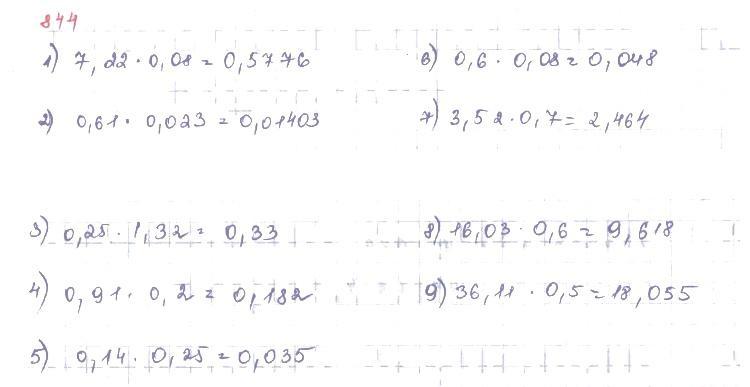 844
1) 7,22 · 0,08 = 0,5776
2) 0,61 · 0,023 = 0,01403
3) 0,25 · 1,32 = 0,33
4) 0,91 · 0,2 = 0,182
5) 0,14 · 0,25 = 0,035
6) 0,6 · 0,08 = 0,048
7) 3,52 · 0,7 = 2,464
8) 16,03 · 0,6 = 9,618
9) 36,11 · 0,5 = 18,055